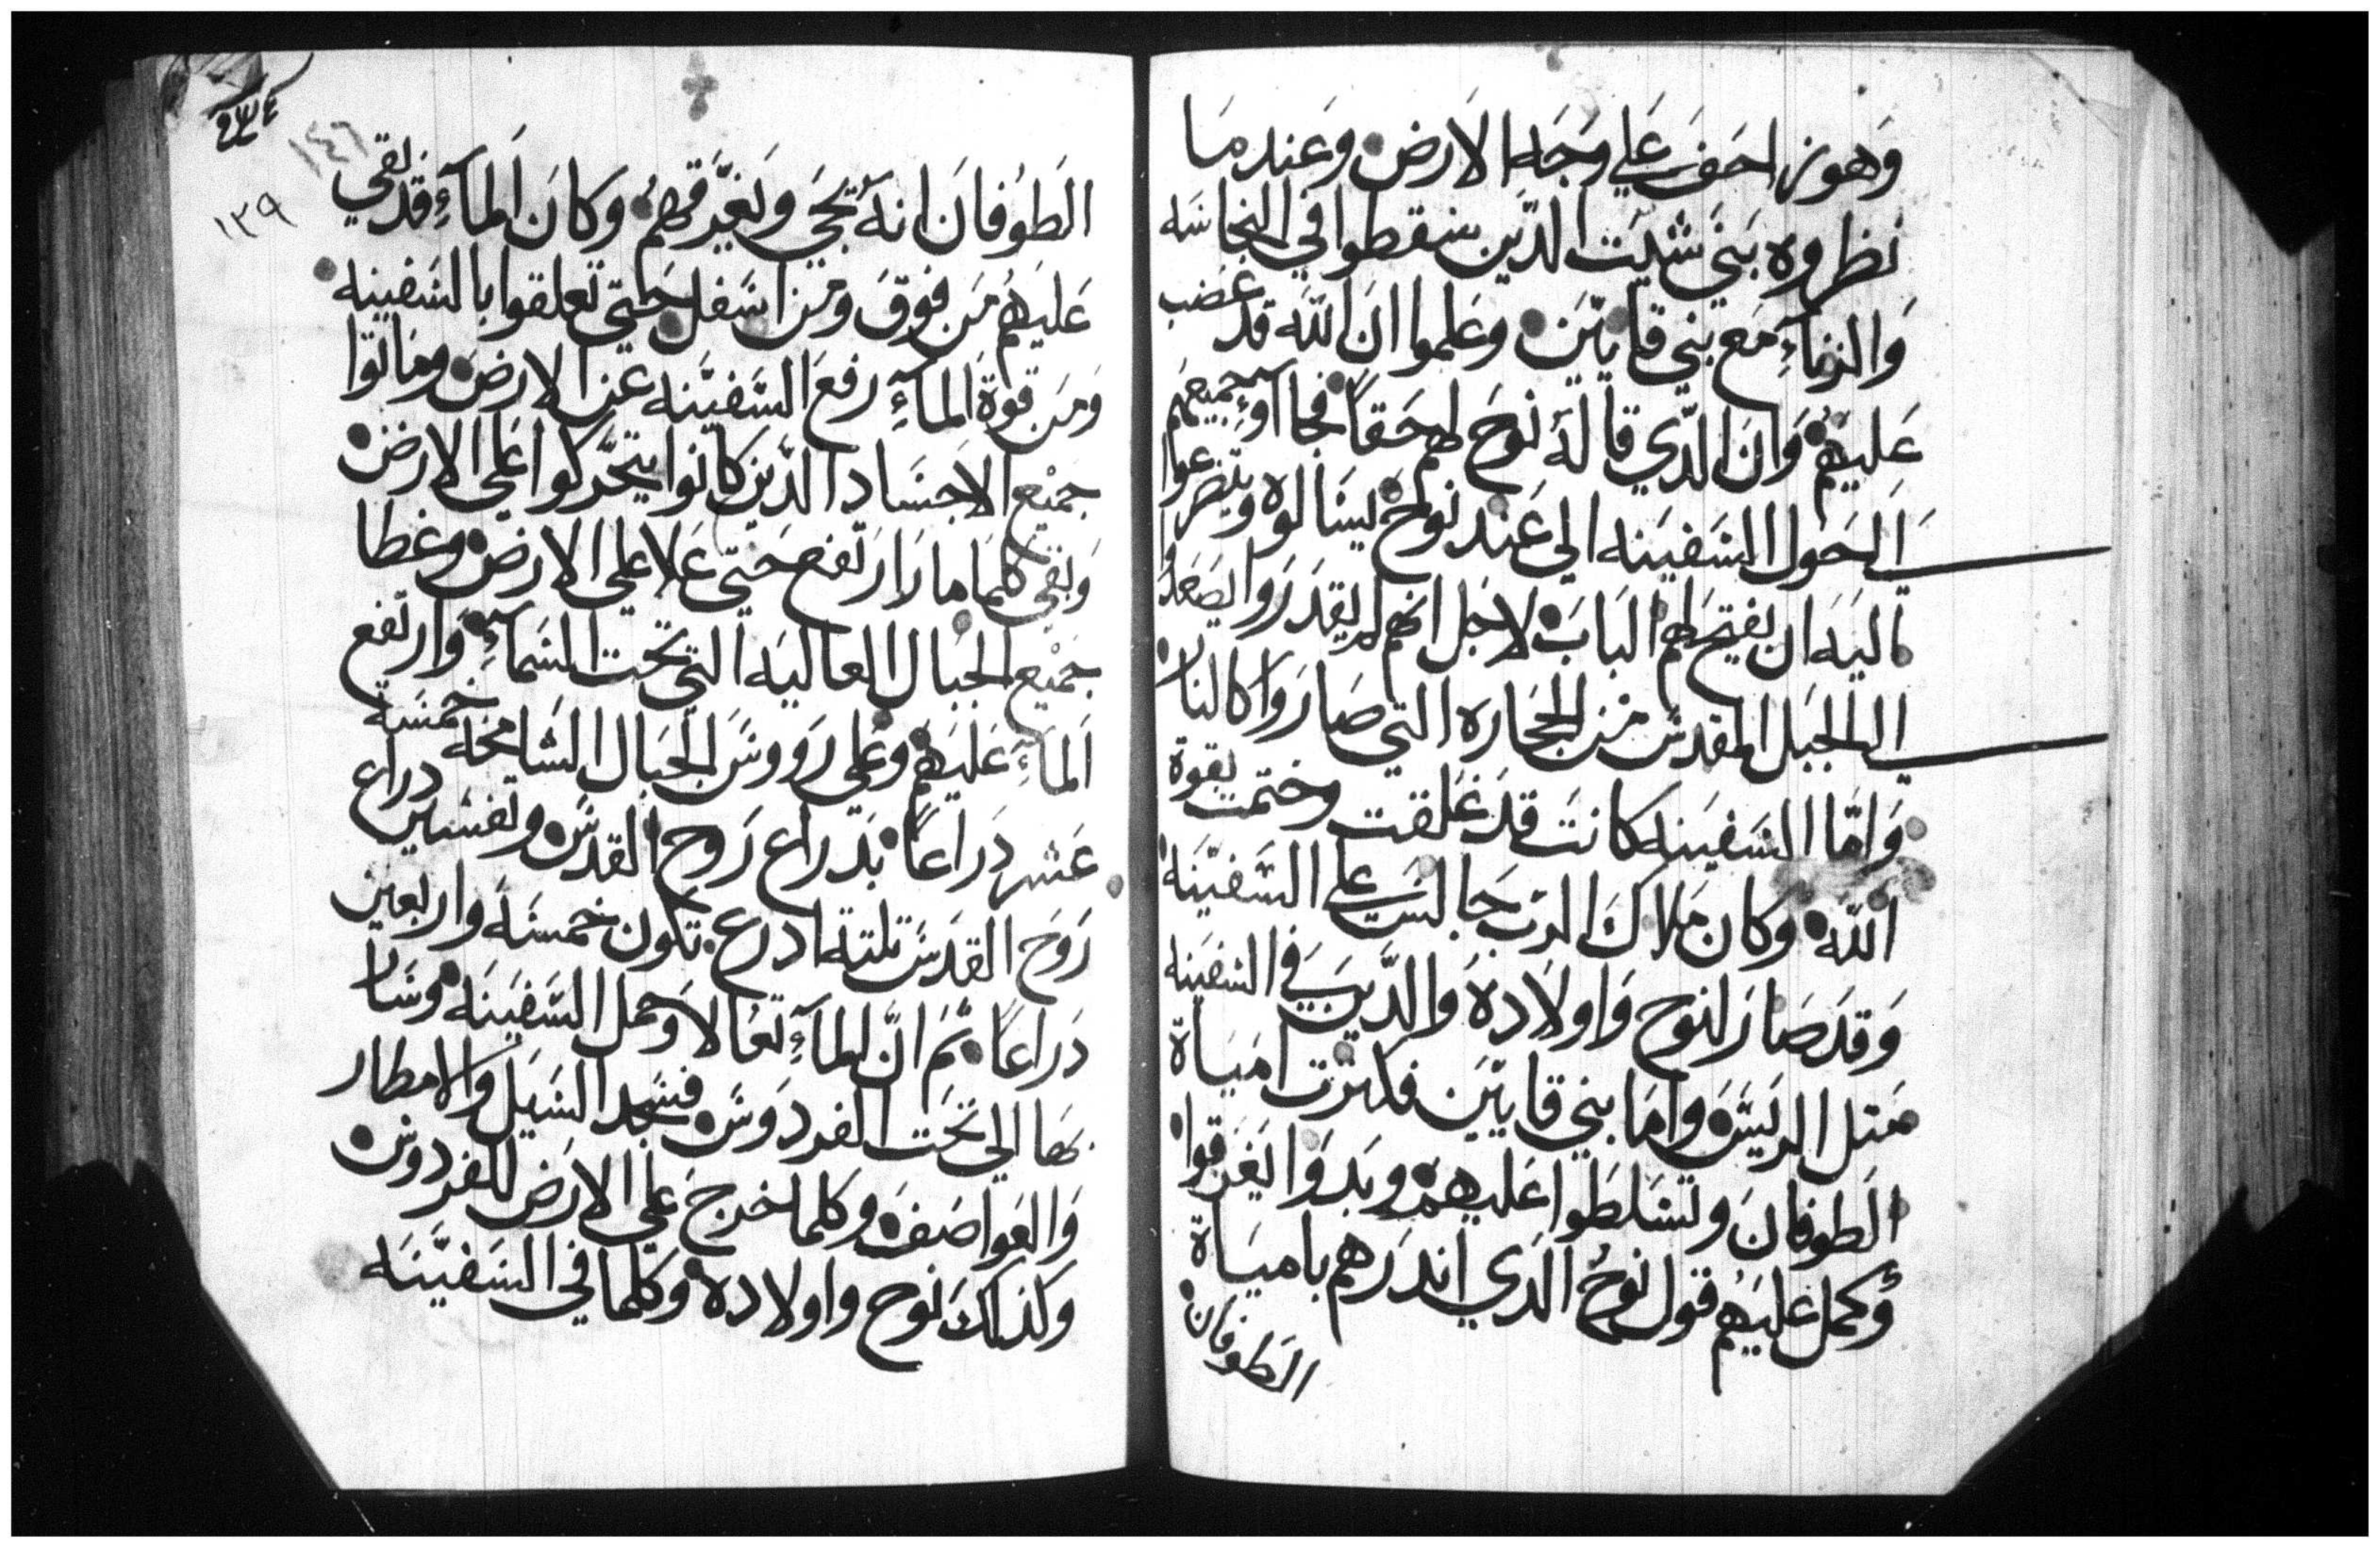 وَهو زاحف علي وجه الارض وعند ما
نظروه بني شيت الدين سقطوا في النجاسه
والزناء مع بني قايين وعلموا ان الله قد غضب
عليهم وان الدي قاله نوح لهم حقاً فجاآوء جميعهم
الحول السفينه الي عند نوح يسالوه ويتضرعوا
اليه ان يفتح لهم الباب لاجل انهم لم يقدروا يصعدوا
الي الجبل المقدس من الحجاره التي صاروا كالنار
وامّا السفينه كانت قد غلقت وختمت بقوة
الله وكان ملاك الرب جالس علي السفينة
وقد صار نوح واولاده والدين في السفينه
متل الريس واما بني قايين فكترت امياة
الطوفان وتسلطوا عليهم وبدوا يغرقوا
وكمل عليهم قول نوح الدي اندرهم بامياة
الطوفان
٢٣٤
١٤٦
١٣٩
الطوفان انه يجي ويغرقهم وكان الماء قد بقي
عليهم من فوق ومن اسفل حتي تعلقوا بالسفينه
ومن قوة الماء رفع السفينه عن الارض وماتوا
جميع الاجساد الدين كانوا يتحركوا علي الارض
وبقي كلما ما را ارتفع حتي علا علي الارض وغطا
جميع الجبال العاليه التي تحت السماء وارتفع
الماء عليهم وعلي رووس الجبال الشامخه خمسة
عشر دراعاً بدراع روح القدس وتفسير دراع
روح القدس تلتة ادرع تكون خمسه واربعين
دراعاً تم انّ الماء تعالا وحمل السفينه وسار
بها الي تحت الفردوس فسجد السيل والامطار
والعواصف وكلما خرج علي الارض للفردوس
وكذلك نوح واولاده وكلما في السفينه